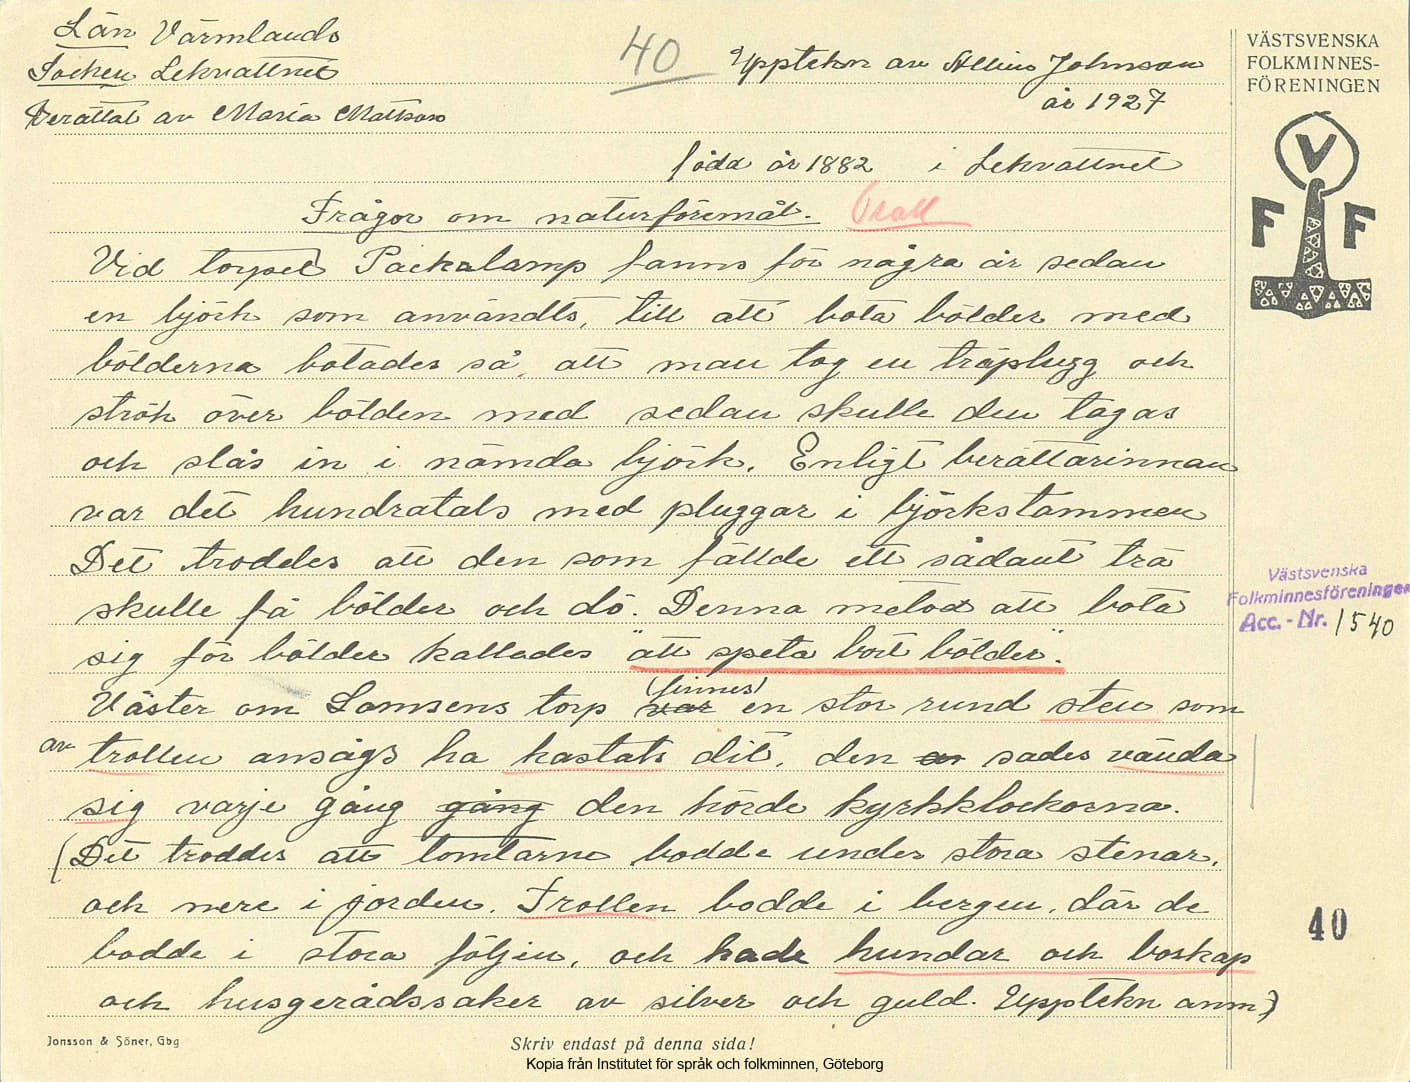 Län Värmlands
Socken Lekvattnet
Berättat av Maria Mattsson
40
Upptekn av Albin Johnson
år 1927
född år 1882 i Lekvattnet
Frågor om naturföremål.
Vid torpet Packalamp fanns för några år sedan
en björk som användts, till att bota bölder med
bölderna botades så, att man tog en träplugg och
strök över bölden med sedan skulle den tagas
och slås in i nämda björk. Enligt berättarinnan
var det hundratals med pluggar i björkstammen
Det troddes att den som fällde ett sådant trä
skulle få bölder och dö. Denna metod att bota
sig för bölder kallades "att speta bort bölder".
Väster om Lomsens torp var (finnes) en stor rund sten som
av trollen ansågs ha kastats dit, den sades vända
sig varje gång gång den hörde kyrkklockorna.
(Det troddes att tomtarne bodde under stora stenar,
och nere i jorden. Trollen bodde i bergen, där de
bodde i stora följen, och hade hundar och boskap
och husgerådssaker av silver och guld. Upptekn anm)
VÄSTSVENSKA
FOLKMINNES-
FÖRENINGEN
V
F F
Västsvenska
Folkminnesföreningen
Acc.-Nr. 1540
40
Jonsson & Söner, Gbg
Skriv endast på denna sida!
Kopia från Institutet för språk och folkminnen, Göteborg